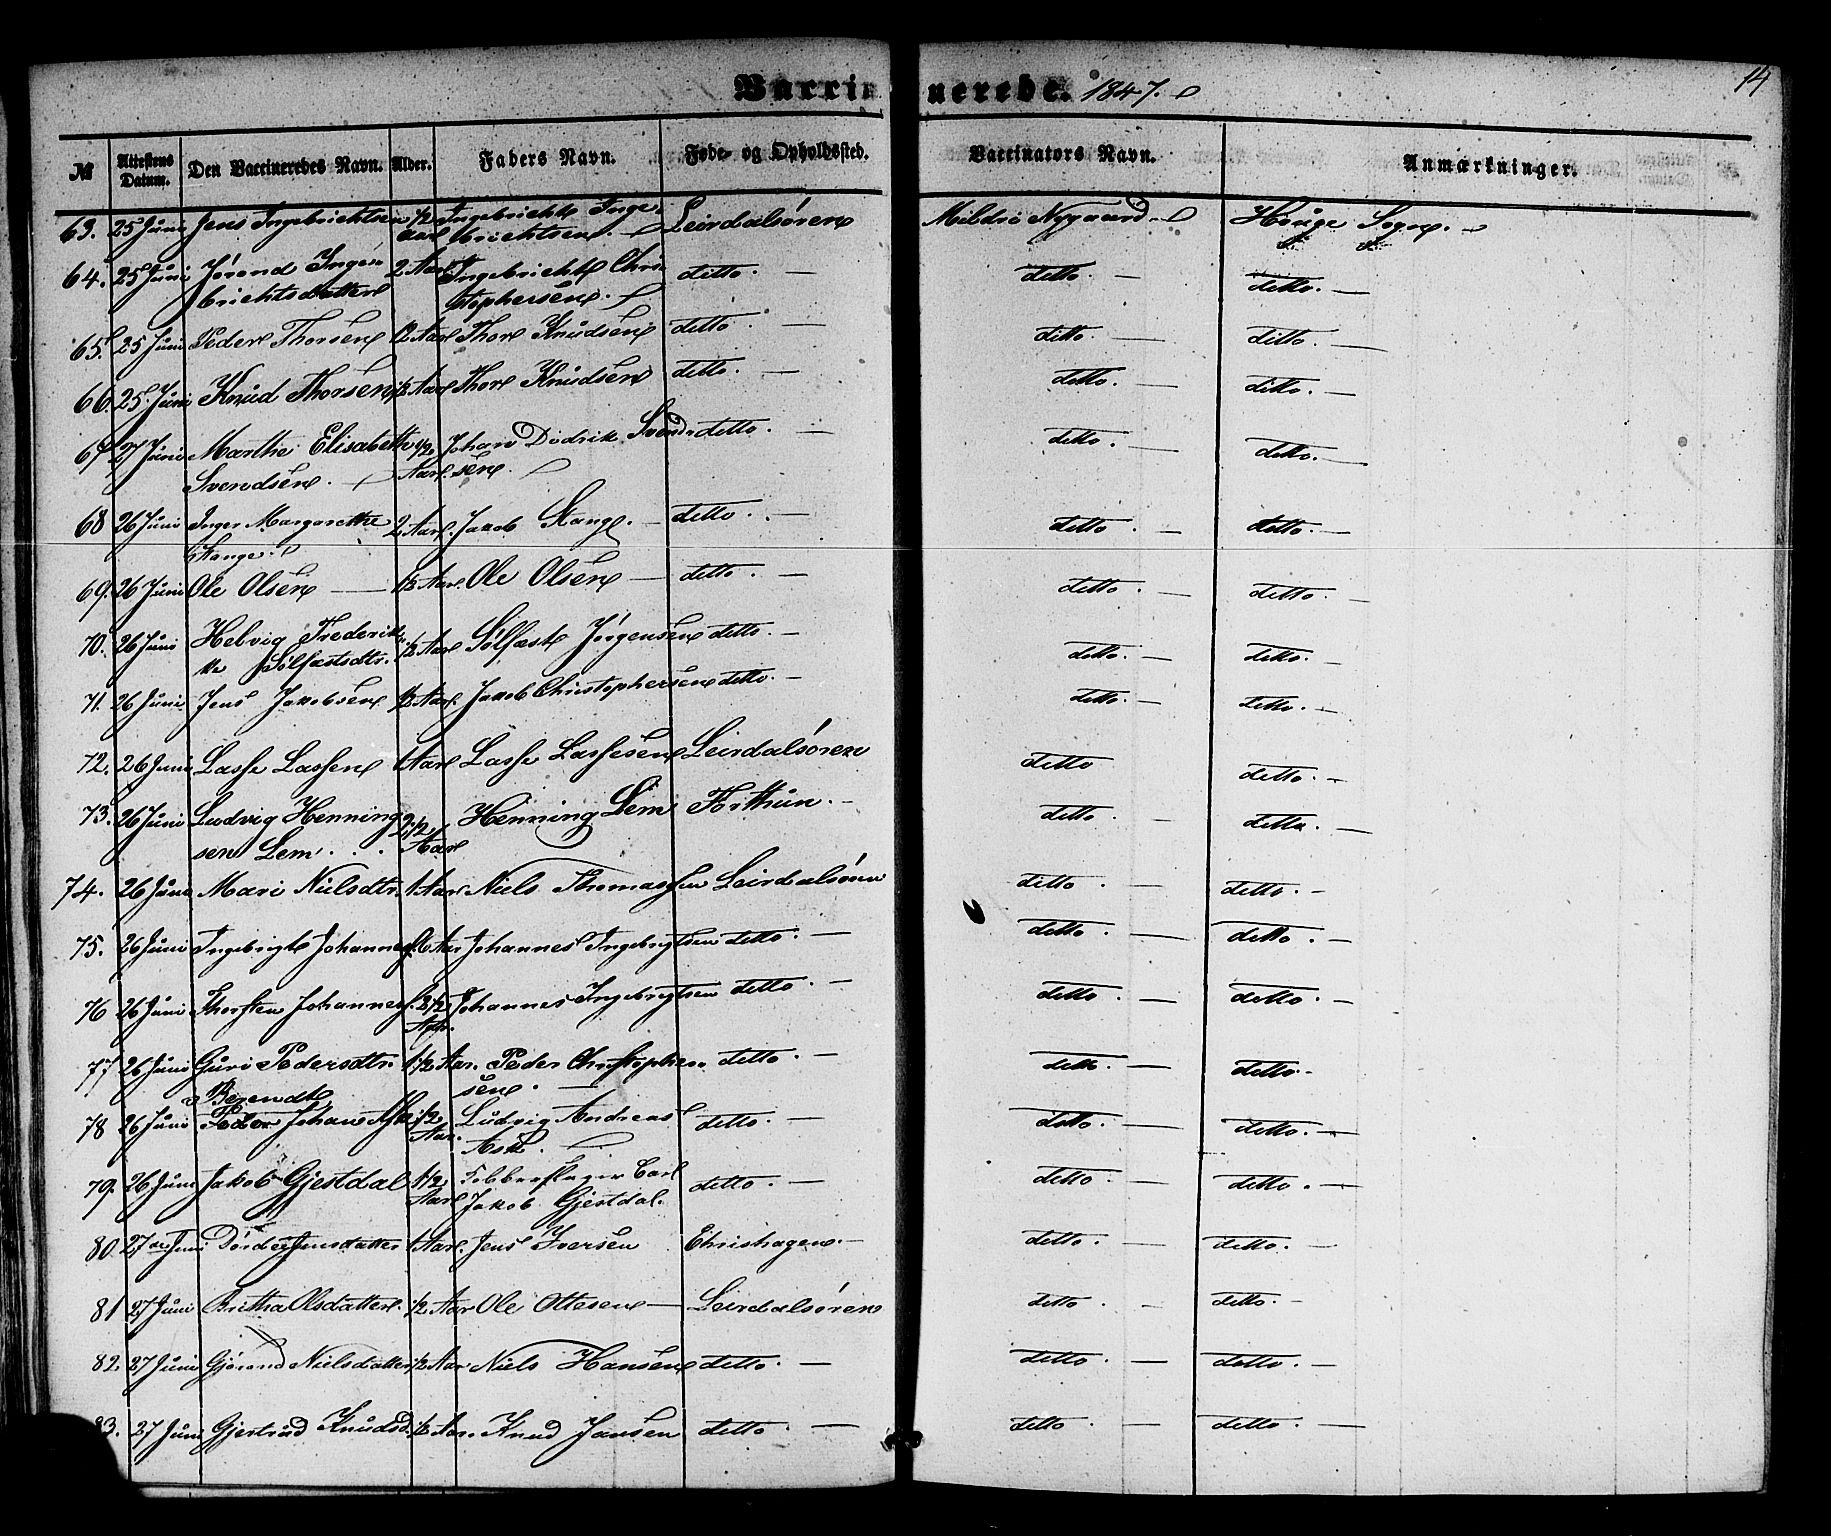 Vaccinerede. 1847.
14
№ Attestens Datum. Den Vaccineredes Navn. Alder. Faders Navn. Føde- og Opholdssted. Vaccinators Navn. Anmærkninger.
63. 25 Juni Jens Ingebrichtsen 1/2 Aar Ingebricht Inge- Leirdalsøren Nygaard Hauge Sogn.
brichtsen.
64. 25 Juni Jørend Inge- 2 Aar Ingebricht Chri- ditto. ditto. ditto.
brichtsdatter stophersen.
65. 25 Juni Peder Thorsen Aar Thor Knudsen ditto. ditto. ditto.
66. 25 Juni Knud Thorsen 1/2 Aar Thor Knudsen ditto. ditto. ditto.
67 27 Juni Marthe Elisabeth 1/2 Johan Didrik Svend- ditto. ditto. ditto.
Svendsen. Aar sen.
68 26 Juni Inger Margarethe 2 Aar. Jakob Stange. ditto. ditto. ditto.
Stange.
69. 26 Juni Ole Olsen 1/2 Aar. Ole Olsen ditto. ditto. ditto.
70. 26 Juni Helvig Frederik- 1/2 Aar Sølfæst Jørgensen ditto. ditto. ditto.
ke Sølfæstsdtr.
71. 26 Juni Jens Jakobsen 1/2 Aar. Jakob Christophersen ditto. ditto. ditto.
72. 26 Juni Lasse Lassen 1 Aar Lasse Lassesen Leirdalsøren ditto ditto.
73. 26 Juni Ludvig Henning- 2 1/2 Henning Lem Forthun. ditto. ditto.
sen Lem. Aar
74. 26 Juni Mari Nielsdtr. 1 Aar Niels Thomassen Leirdalsøren ditto. ditto.
75. 26 Juni Ingebrigt Johannes. Aar Johannes Ingebrigtsen ditto. ditto. ditto.
76 26 Juni Thorsten Johannes. 2 1/2 Johannes Ingebrigtsen ditto. ditto. ditto.
Aar.
77 26 Juni Guri Pedersdtr. 1 1/2 Aar. Peder Christopher- ditto. ditto. ditto.
sen.
Berendt
78 26 Juni Peder Johan Ask 1/2 Ludvig Andreas ditto. ditto. ditto.
Aar. Ask.
79. 26 Juni Jakob Gjestdal 1 1/2 Kobberslager Carl ditto. ditto. ditto.
Aar Jakob Gjestdal.
80. 27de Juni Dørdei Jensdatter 1 Aar. Jens Iversen Ehrishagen. ditto. ditto.
81 27 Juni Britha Olsdatter. 1/2 Aar Ole Ottesen Leirdalsøren ditto. ditto.
82. 27 Juni Gjørend Nielsdatter 1/2 Aar Niels Hansen ditto. ditto. ditto.
83. 27 Juni Gjertrud Knudsd. 1/2 Aar. Knud Jansen ditto. ditto. ditto.